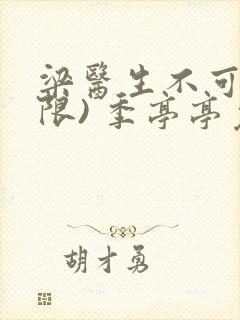 梁醫生不可
限) 季亭亭
胡才勇